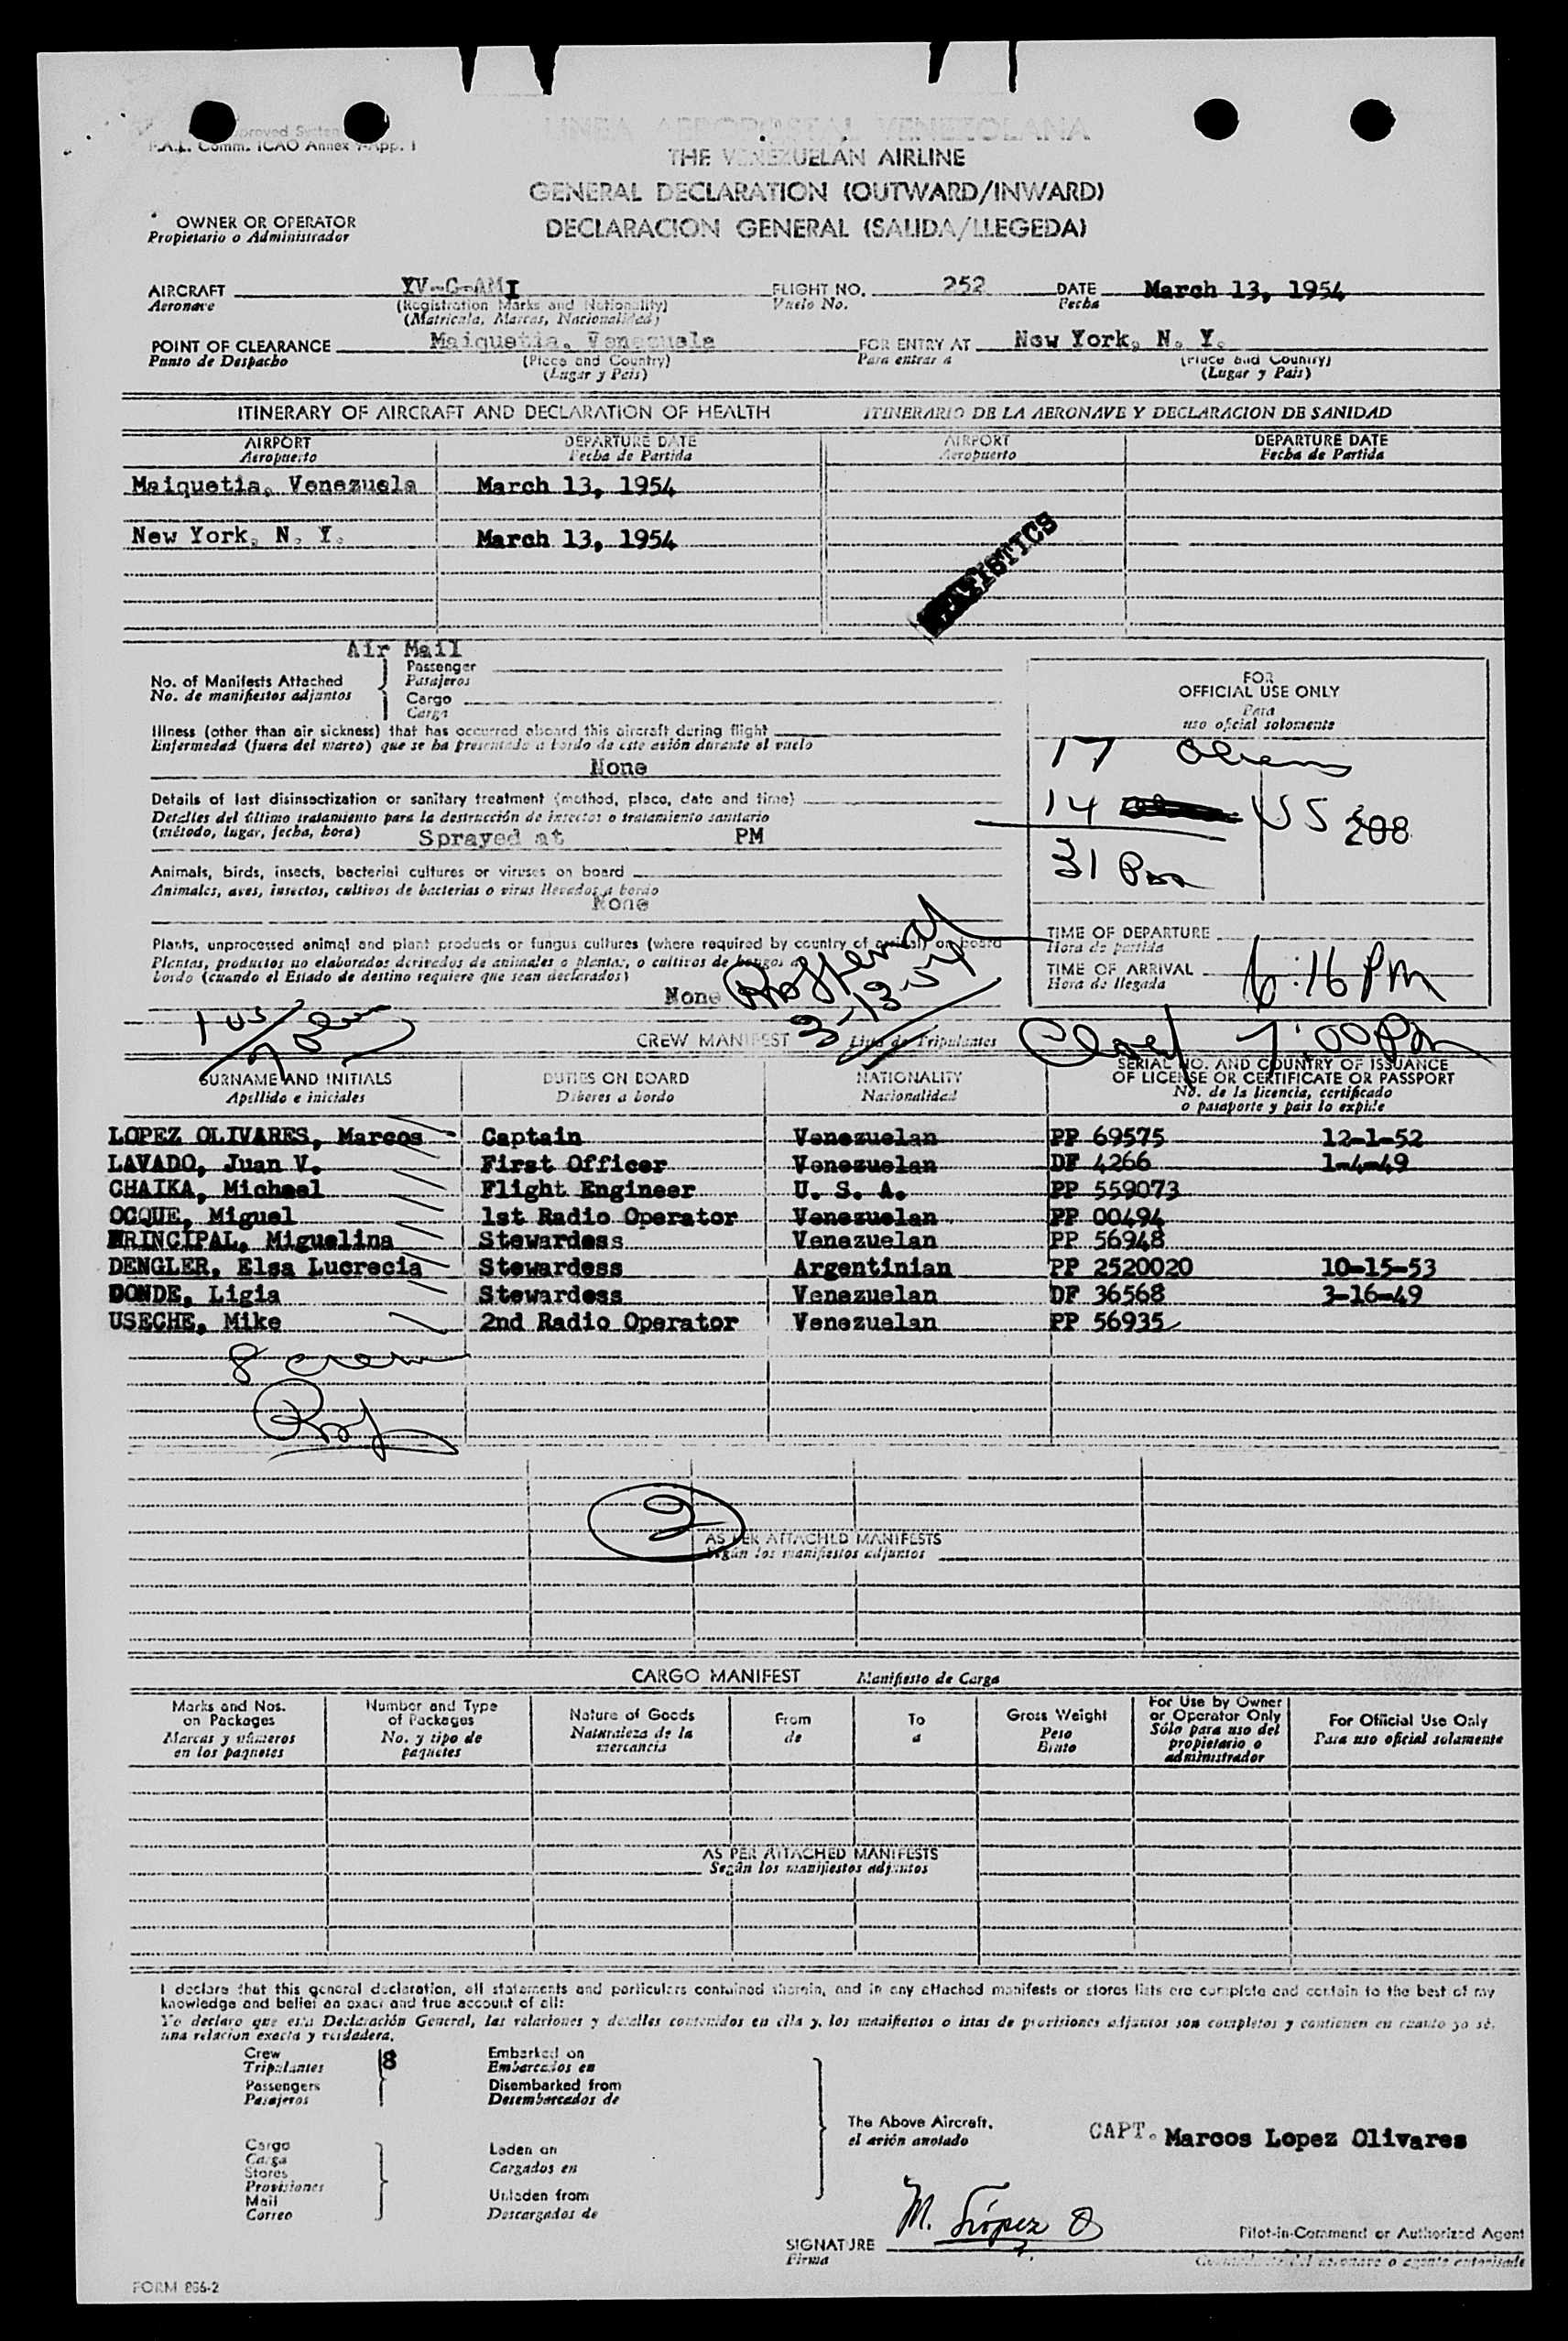 Approved System
F.A.L. Comm. ICAO Annex 9-App. 1
LINEA AEROPOSTAL VENEZOLANA
THE VENEZUELAN AIRLINE
GENERAL DECLARATION (OUTWARD/INWARD)
DECLARACION GENERAL (SALIDA/LLEGEDA)
OWNER OR OPERATOR
Propietario o Administrador
AIRCRAFT YV-C-AMI FLIGHT NO. 252 DATE March 13, 1954
Aeronave (Registration Marks and Nationality) Vuelo No. Fecha
(Matricula, Marcas, Nacionalidad)
POINT OF CLEARANCE Maiquetia, Venezuela FOR ENTRY AT New York, N. Y.
Punto de Despacho (Place and Country) Para entrar a (Place and Country)
(Lugar y Pais) (Lugar y Pais)
ITINERARY OF AIRCRAFT AND DECLARATION OF HEALTH ITINERARIO DE LA AERONAVE Y DECLARACION DE SANIDAD
AIRPORT DEPARTURE DATE AIRPORT DEPARTURE DATE
Aeropuerto Fecha de Partida Aeropuerto Fecha de Partida
Maiquetia, Venezuela March 13, 1954
New York, N. Y. March 13, 1954
STATISTICS
Air Mail
No. of Manifests Attached Passenger
No. de manifiestos adjuntos Pasajeros
Cargo
Carga
FOR
OFFICIAL USE ONLY
Para
uso oficial solomente
Illness (other than air sickness) that has occurred aboard this aircraft during flight
Enfermedad (fuera del mareo) que se ha presentado a bordo de este avión durante el vuelo
None
17 Aliens
14 USS 208
31 Pax
Details of last disinsectization or sanitary treatment (method, place, date and time)
Detalles del último tratamiento para la destrucción de insectos o tratamiento sanitario
(método, lugar, fecha, hora) Sprayed at PM
Animals, birds, insects, bacterial cultures or viruses on board
Animales, aves, insectos, cultivos de bacterias o virus llevados a bordo
None
Plants, unprocessed animal and plant products or fungus cultures (where required by country of arrival) on board
Plantas, productos no elaborados derivados de animales o plantas, o cultivos de hongos a
bordo (cuando el Estado de destino requiere que sean declarados)
None
3-13-54
TIME OF DEPARTURE
Hora de partida
TIME OF ARRIVAL 6:16 PM
Hora de llegada
1 US
CREW MANIFEST Lista de Tripulantes
7:00 PM
SURNAME AND INITIALS DUTIES ON BOARD NATIONALITY SERIAL NO. AND COUNTRY OF ISSUANCE
OF LICENSE OR CERTIFICATE OR PASSPORT
Apellido e iniciales Deberes a bordo Nacionalidad No. de la licencia, certificado
o pasaporte y pais lo expide
LOPEZ OLIVARES, Marcos Captain Venezuelan PP 69575 12-1-52
LAVADO, Juan V. First Officer Venezuelan DF 4266 1-4-49
CHAIKA, Michael Flight Engineer U. S. A. PP 559073
OCQUE, Miguel 1st Radio Operator Venezuelan PP 00494
PRINCIPAL, Miguelina Stewardess Venezuelan PP 56948
DENGLER, Elsa Lucrecia Stewardess Argentinian PP 2520020 10-15-53
DONDE, Ligia Stewardess Venezuelan DF 36568 3-16-49
USECHE, Mike 2nd Radio Operator Venezuelan PP 56935
8 crew
2
AS PER ATTACHED MANIFESTS
Según los manifiestos adjuntos
CARGO MANIFEST Manifiesto de Carga
Marks and Nos. on Packages Number and Type of Packages Nature of Goods From To Gross Weight For Use by Owner or Operator Only For Official Use Only
Marcas y números en los paquetes No. y tipo de paquetes Naturaleza de la mercancia de a Peso Bruto Sólo para uso del propietario o administrador Para uso oficial solamente
AS PER ATTACHED MANIFESTS
Según los manifiestos adjuntos
I declare that this general declaration, all statements and particulars contained therein, and in any attached manifests or stores lists are complete and contain to the best of my
knowledge and belief an exact and true account of all:
Yo declaro que esta Declaración General, las relaciones y detalles contenidos en ella y, los manifiestos o istas de provisiones adjuntos son completos y contienen en cuanto yo sé,
una relacion exacta y verdadera.
Crew 8 Embarked on
Tripulantes Embarcados en
Passengers Disembarked from
Pasajeros Desembarcados de
The Above Aircraft.
el avión anotado
CAPT. Marcos Lopez Olivares
Cargo Laden on
Carga Cargados en
Stores
Provisiones
Mail Unladen from
Correo Descargados de
M. López O
SIGNATURE Pilot-in-Command or Authorized Agent
Firma
FORM 866-2